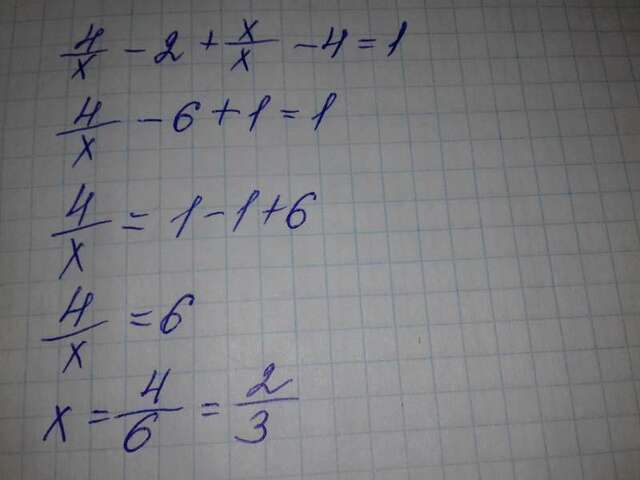 4/x - 2 + x/x - 4 = 1
4/x - 6 + 1 = 1
4/x = 1 - 1 + 6
4/x = 6
x = 4/6 = 2/3